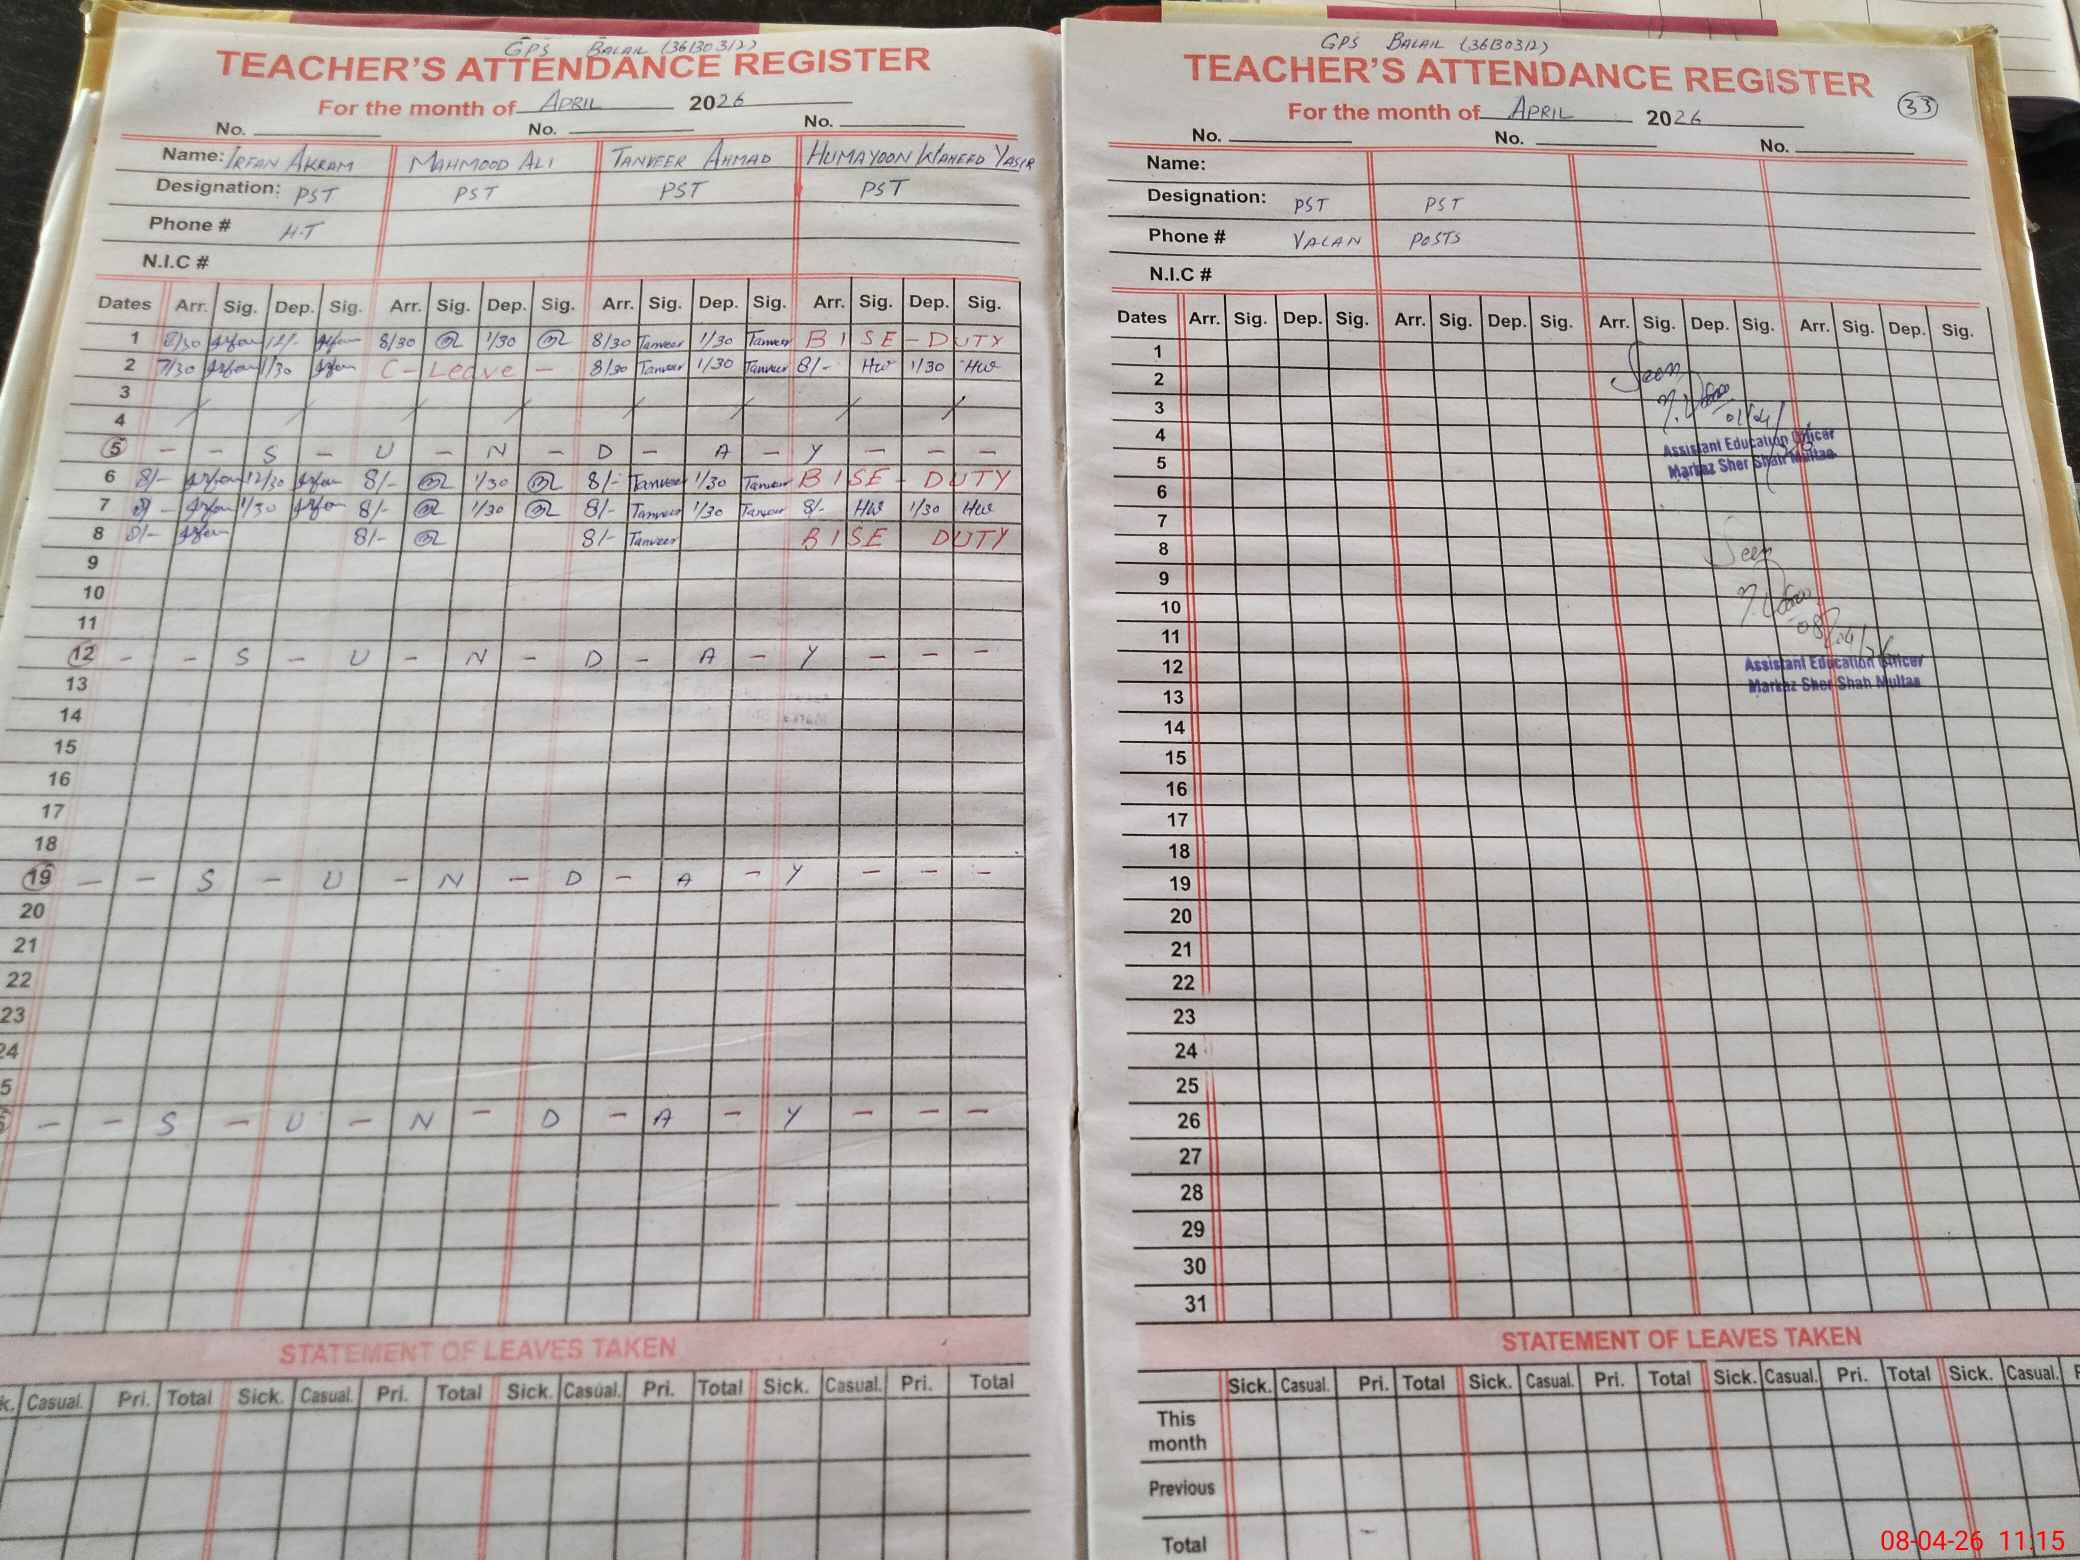 GPS BALAIL (36130312)
TEACHER'S ATTENDANCE REGISTER
For the month of APRIL 2026
No. No. No.
Name: IRFAN AKRAM MAHMOOD ALI TANVEER AHMAD HUMAYOON WAHEED YASIR
Designation: PST PST PST PST
Phone # H.T
N.I.C #
Dates Arr. Sig. Dep. Sig. Arr. Sig. Dep. Sig. Arr. Sig. Dep. Sig. Arr. Sig. Dep. Sig.
1 8/30 Irfan 12/- Irfan 8/30 1/30 8/30 Tanveer 1/30 Tanveer BISE - DUTY
2 7/30 Irfan 1/30 Irfan C - Leave - 8/30 Tanveer 1/30 Tanveer 8/- HW 1/30 HW
3
4
5 - - S U - N - D - A - Y - - -
6 8/- Irfan 12/30 Irfan 8/- 1/30 8/- Tanveer 1/30 Tanveer BISE - DUTY
7 8/- Irfan 1/30 Irfan 8/- 1/30 8/- Tanveer 1/30 Tanveer 8/- HW 1/30 HW
8 8/- Irfan 8/- 8/- Tanveer BISE DUTY
9
10
11
12 - - S - U - N - D - A - Y - - -
13
14
15
16
17
18
19 - - S - U - N - D - A - Y - - -
20
21
22
23
24
5
- - S - U - N - D - A - Y - - -
STATEMENT OF LEAVES TAKEN
k. Casual. Pri. Total Sick. Casual. Pri. Total Sick. Casual. Pri. Total Sick. Casual. Pri. Total
GPS BALAIL (36130312)
TEACHER'S ATTENDANCE REGISTER
For the month of APRIL 2026 33
No. No. No.
Name:
Designation: PST PST
Phone # VACAN POSTS
N.I.C #
Dates Arr. Sig. Dep. Sig. Arr. Sig. Dep. Sig. Arr. Sig. Dep. Sig. Arr. Sig. Dep. Sig.
1
2 Seen
3
4 01/04/
Assistant Education Officer
5 Markaz Sher Shah Multan
6
7
8 Seen
9
10
11 08/04/26
12 Assistant Education Officer
13 Markaz Sher Shah Multan
14
15
16
17
18
19
20
21
22
23
24
25
26
27
28
29
30
31
STATEMENT OF LEAVES TAKEN
Sick. Casual. Pri. Total Sick. Casual. Pri. Total Sick. Casual. Pri. Total Sick. Casual.
This month
Previous
Total
08-04-26 11:15